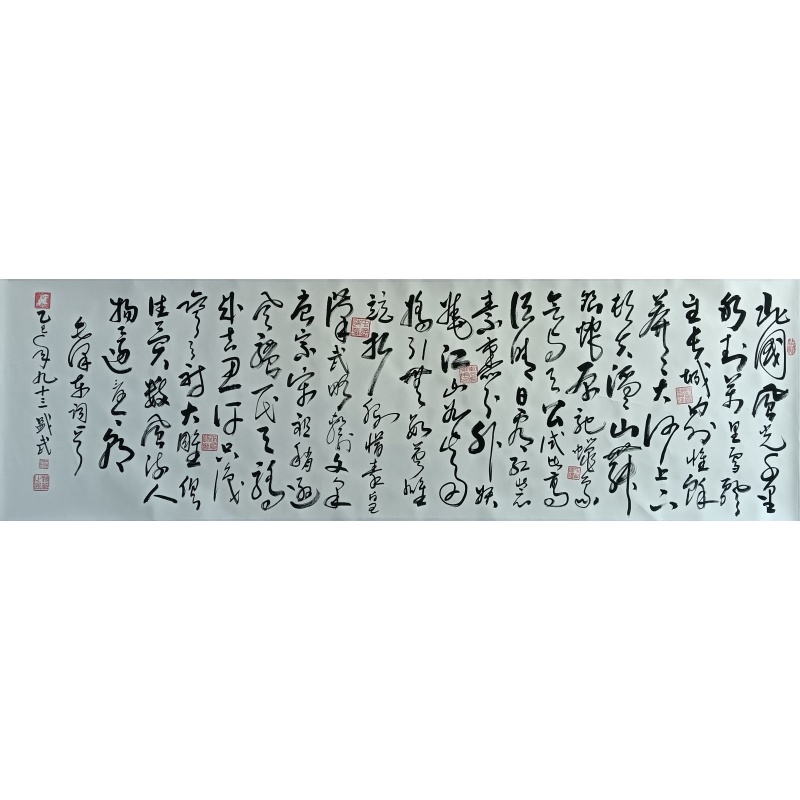 北國風光千里
冰封萬里雪飄
望長城內外惟餘
莽莽大河上下
頓失滔滔山舞
銀蛇原馳蠟象
欲與天公試比高
須晴日看紅裝
素裹分外妖
嬈江山如此多
嬌引無數英雄
競折腰惜秦皇
漢武略輸文采
唐宗宋祖稍遜
風騷一代天驕
成吉思汗只識
彎弓射大雕俱
往矣數風流人
物還看今朝
毛澤東詞一首
乙巳年九十三